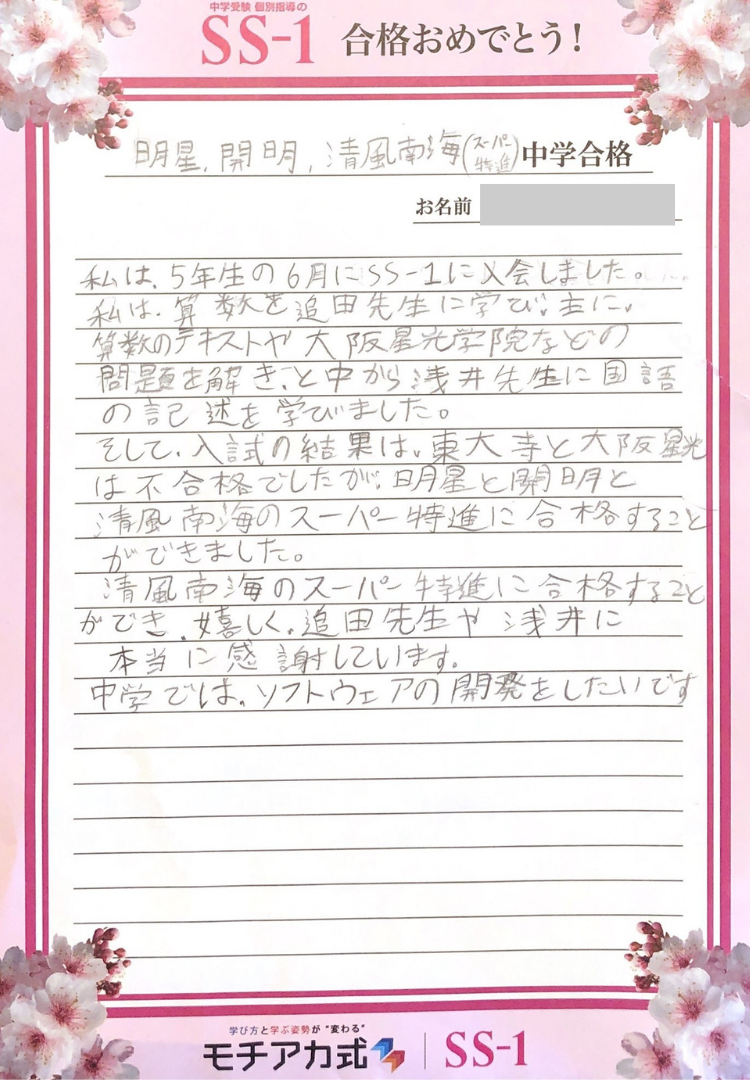 中学受験 個別指導の
SS-1 合格おめでとう!
明星, 開明, 清風南海(スーパー特進)中学合格
お名前
私は、5年生の6月にSS-1に入会しました。
私は、算数を追田先生に学び、主に、
算数のテキストや大阪星光学院などの
問題を解き、と中から浅井先生に国語
の記述を学びました。
そして、入試の結果は、東大寺と大阪星光
は不合格でしたが、明星と開明と
清風南海のスーパー特進に合格すること
ができました。
清風南海のスーパー特進に合格すること
ができ、嬉しく、追田先生や浅井に
本当に感謝しています。
中学では、ソフトウェアの開発をしたいです
学び方と学ぶ姿勢が"変わる"
モチアカ式 SS-1